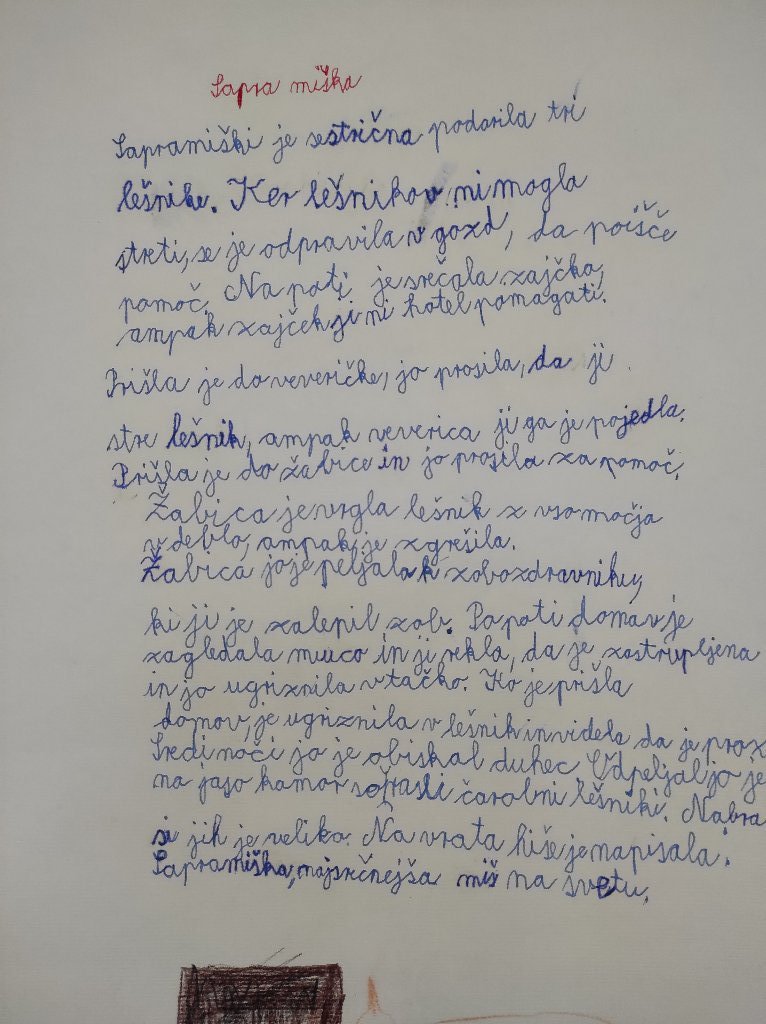 Sapra miška
Sapramiški je sestrična podarila tri
lešnike. Ker lešnikov ni mogla
streti, se je odpravila v gozd, da poišče
pomoč. Na poti je srečala zajčka,
ampak zajček ji ni hotel pomagati.
Prišla je do veveričke, jo prosila, da ji
stre lešnik, ampak veverica ji ga je pojedla.
Prišla je do žabice in jo prosila za pomoč.
Žabica je vrgla lešnik z vso močjo
v deblo, ampak je zgrešila.
Žabica jo je peljala k zobozdravniku,
ki ji je zalepil zob. Po poti domov je
zagledala muco in ji rekla, da je zastrupljena
in jo ugriznila v tačko. Ko je prišla
domov, je ugriznila v lešnik in videla da je praz
Sredi noči jo je obiskal duhec. Odpeljal jo je
na jaso kamor so rasli čarobni lešniki. Nabra
si jih je veliko. Na vrata hiše je napisala:
Sapramiška, najsrčnejša miš na svetu.